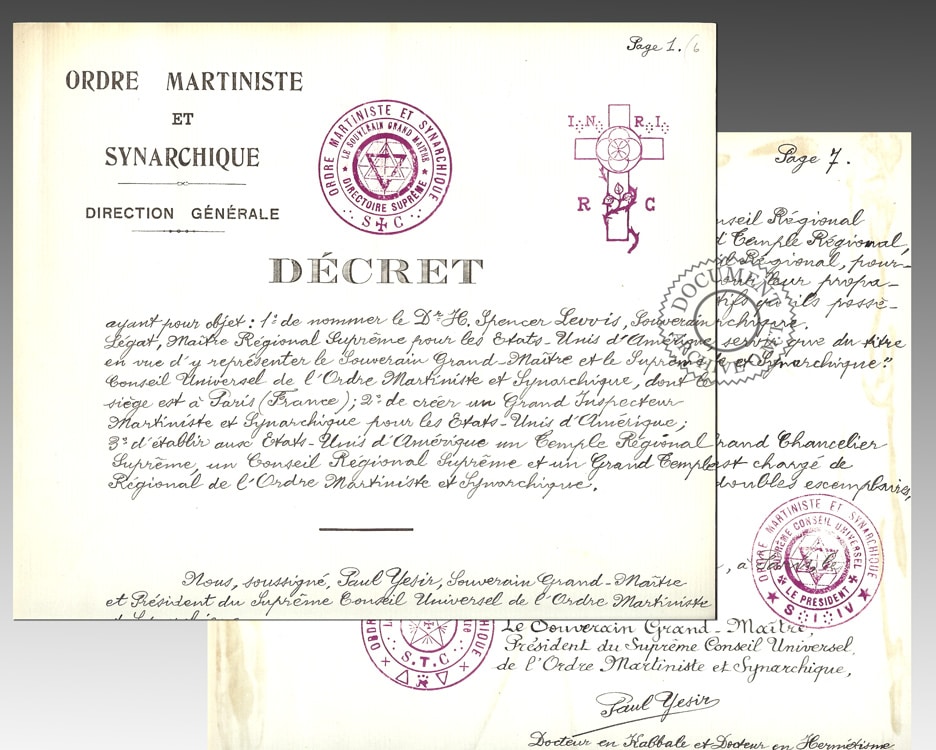 Page 1./6
ORDRE MARTINISTE
ET
SYNARCHIQUE
DIRECTION GÉNÉRALE
ORDRE MARTINISTE ET SYNARCHIQUE
LE SOUVERAIN GRAND MAITRE
DIRECTOIRE SUPRÊME
S C
I.N. R.I.
R C
DÉCRET
ayant pour objet: 1° de nommer le Dr H. Spencer Lewis, Souverain
Légat, Maître Régional Suprême pour les Etats-Unis d'Amérique
en vue d'y représenter le Souverain Grand-Maître et le Suprême
Conseil Universel de l'Ordre Martiniste et Synarchique, dont le
siège est à Paris (France); 2° de créer un Grand Inspecteur
Martiniste et Synarchique pour les Etats-Unis d'Amérique;
3° d'établir aux Etats-Unis d'Amérique un Temple Régional
Suprême, un Conseil Régional Suprême et un Grand Temple
Régional de l'Ordre Martiniste et Synarchique.
Nous, soussigné, Paul Yesir, Souverain Grand-Maître
et Président du Suprême Conseil Universel de l'Ordre Martiniste
et Synarchique
Page 7.
nseil Régional
d Temple Régional,
il Régional, pour-
our leur propa-
tifs qu'ils possè-
rchique.
servir que du titre
te et Synarchique".
DOCUMENT
ARCHIVE
rand Chancelier
est chargé de
doubles escemplaires,
, à Paris, le
ORDRE MARTINISTE ET SYNARCHIQUE
SUPRÊME CONSEIL UNIVERSEL
LE PRÉSIDENT
S I IV
S.T.C.
Le Souverain Grand-Maître,
Président du Suprême Conseil Universel
de l'Ordre Martiniste et Synarchique,
Paul Yesir
Docteur en Kabbale et Docteur en Hermétisme